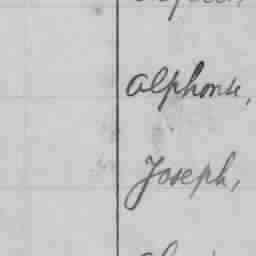 Alphonse,
Joseph,